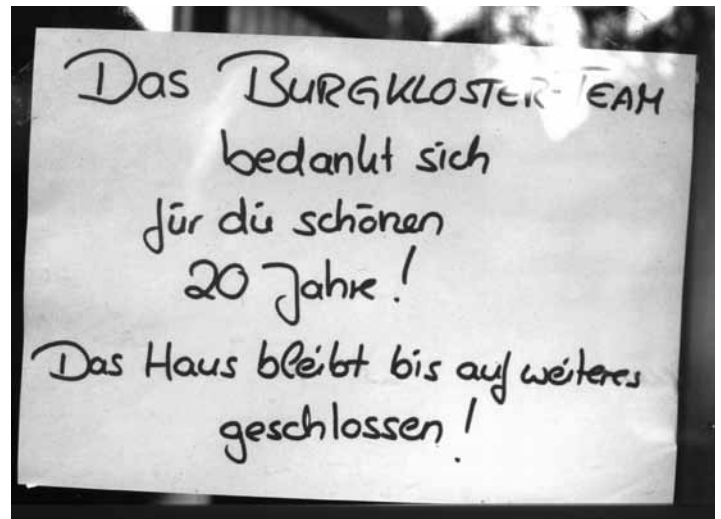 Das BURGKLOSTER-TEAM
bedankt sich
für die schönen
20 Jahre!
Das Haus bleibt bis auf weiteres
geschlossen!